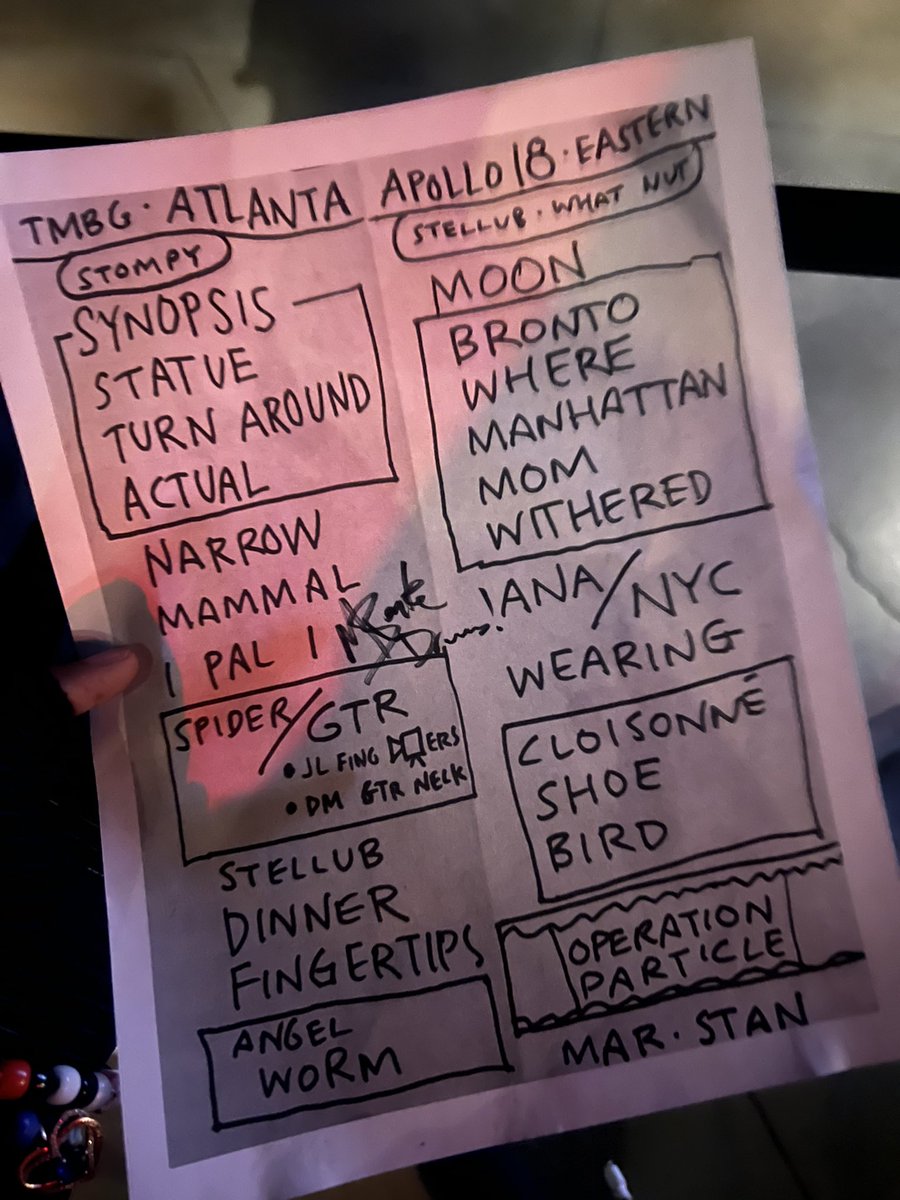 TMBG · ATLANTA
STOMPY
SYNOPSIS
STATUE
TURN AROUND
ACTUAL
NARROW
MAMMAL
I PAL I
SPIDER/GTR
• JL FING ERS
• DM GTR NECK
STELLUB
DINNER
FINGERTIPS
ANGEL
WORM
APOLLO 18 · EASTERN
STELLUB · WHAT NUT
MOON
BRONTO
WHERE
MANHATTAN
MOM
WITHERED
!ANA/NYC
WEARING
CLOISONNÉ
SHOE
BIRD
OPERATION
PARTICLE
MAR · STAN